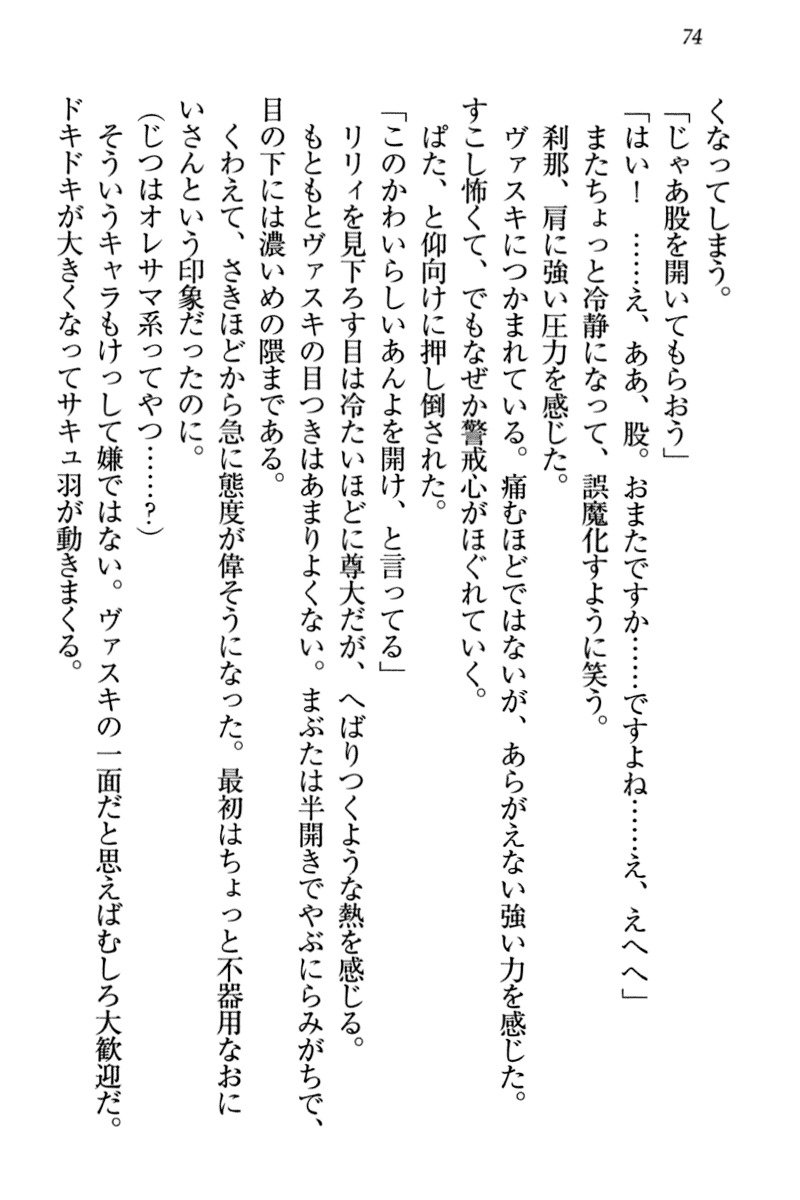 74
くなってしまう。
「じゃあ股を開いてもらおう」
「はい！　……え、ああ、股。おまたですか……ですよね……え、えへへ」
またちょっと冷静になって、誤魔化すように笑う。
刹那、肩に強い圧力を感じた。
ヴァスキにつかまれている。痛むほどではないが、あらがえない強い力を感じた。
すこし怖くて、でもなぜか警戒心がほぐれていく。
ぱた、と仰向けに押し倒された。
「このかわいらしいあんよを開け、と言ってる」
リリィを見下ろす目は冷たいほどに尊大だが、へばりつくような熱を感じる。
もともとヴァスキの目つきはあまりよくない。まぶたは半開きでやぶにらみがちで、
目の下には濃いめの隈まである。
くわえて、さきほどから急に態度が偉そうになった。最初はちょっと不器用なおに
いさんという印象だったのに。
（じつはオレサマ系ってやつ……？）
そういうキャラもけっして嫌ではない。ヴァスキの一面だと思えばむしろ大歓迎だ。
ドキドキが大きくなってサキュ羽が動きまくる。